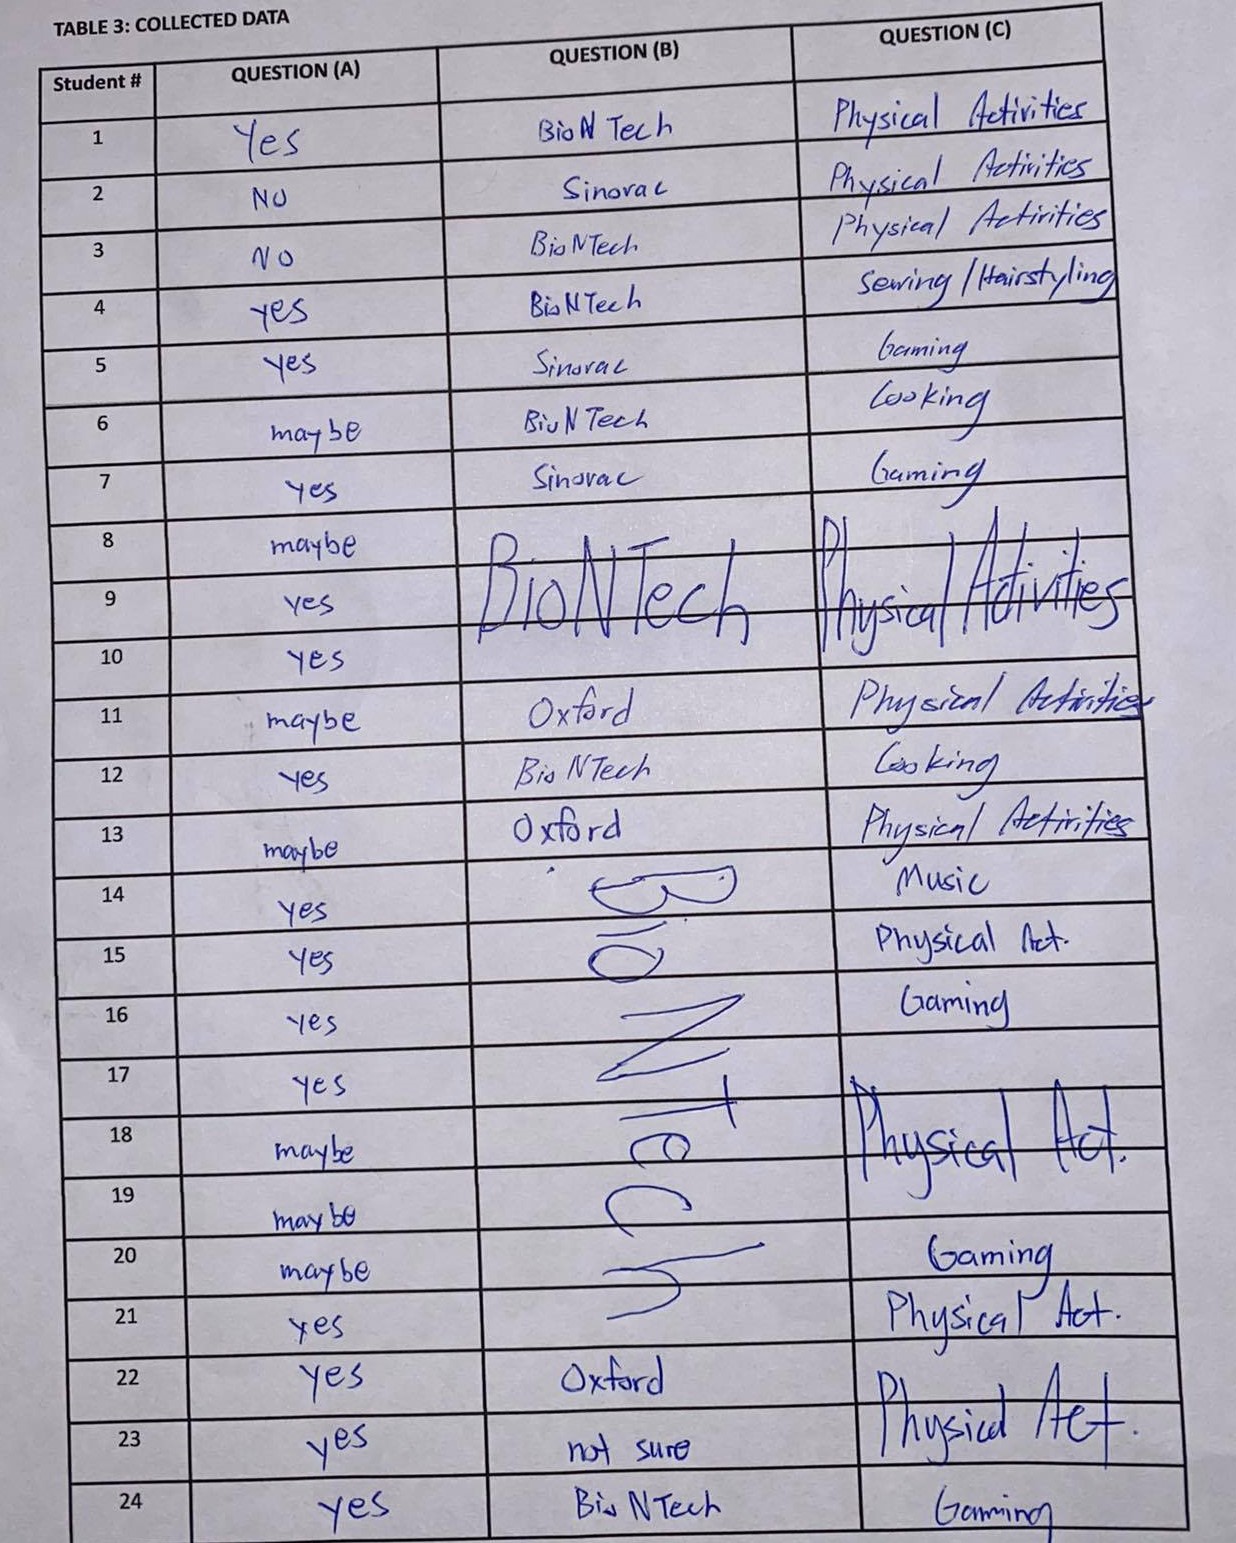 TABLE 3: COLLECTED DATA
Student # QUESTION (A) QUESTION (B) QUESTION (C)
1 Yes BioNTech Physical Activities
2 No Sinovac Physical Activities
3 No BioNTech Physical Activities
4 yes BioNTech Sewing/Hairstyling
5 yes Sinovac Gaming
6 maybe BioNTech Cooking
7 yes Sinovac Gaming
8 maybe
9 yes BioNTech Physical Activities
10 yes
11 maybe Oxford Physical Activities
12 yes BioNTech Cooking
13 maybe Oxford Physical Activities
14 yes Music
15 yes Physical Act.
16 yes Gaming
17 yes BioNTech
18 maybe Physical Act.
19 maybe
20 maybe Gaming
21 yes Physical Act.
22 yes Oxford Physical Act.
23 yes not sure
24 yes BioNTech Gaming